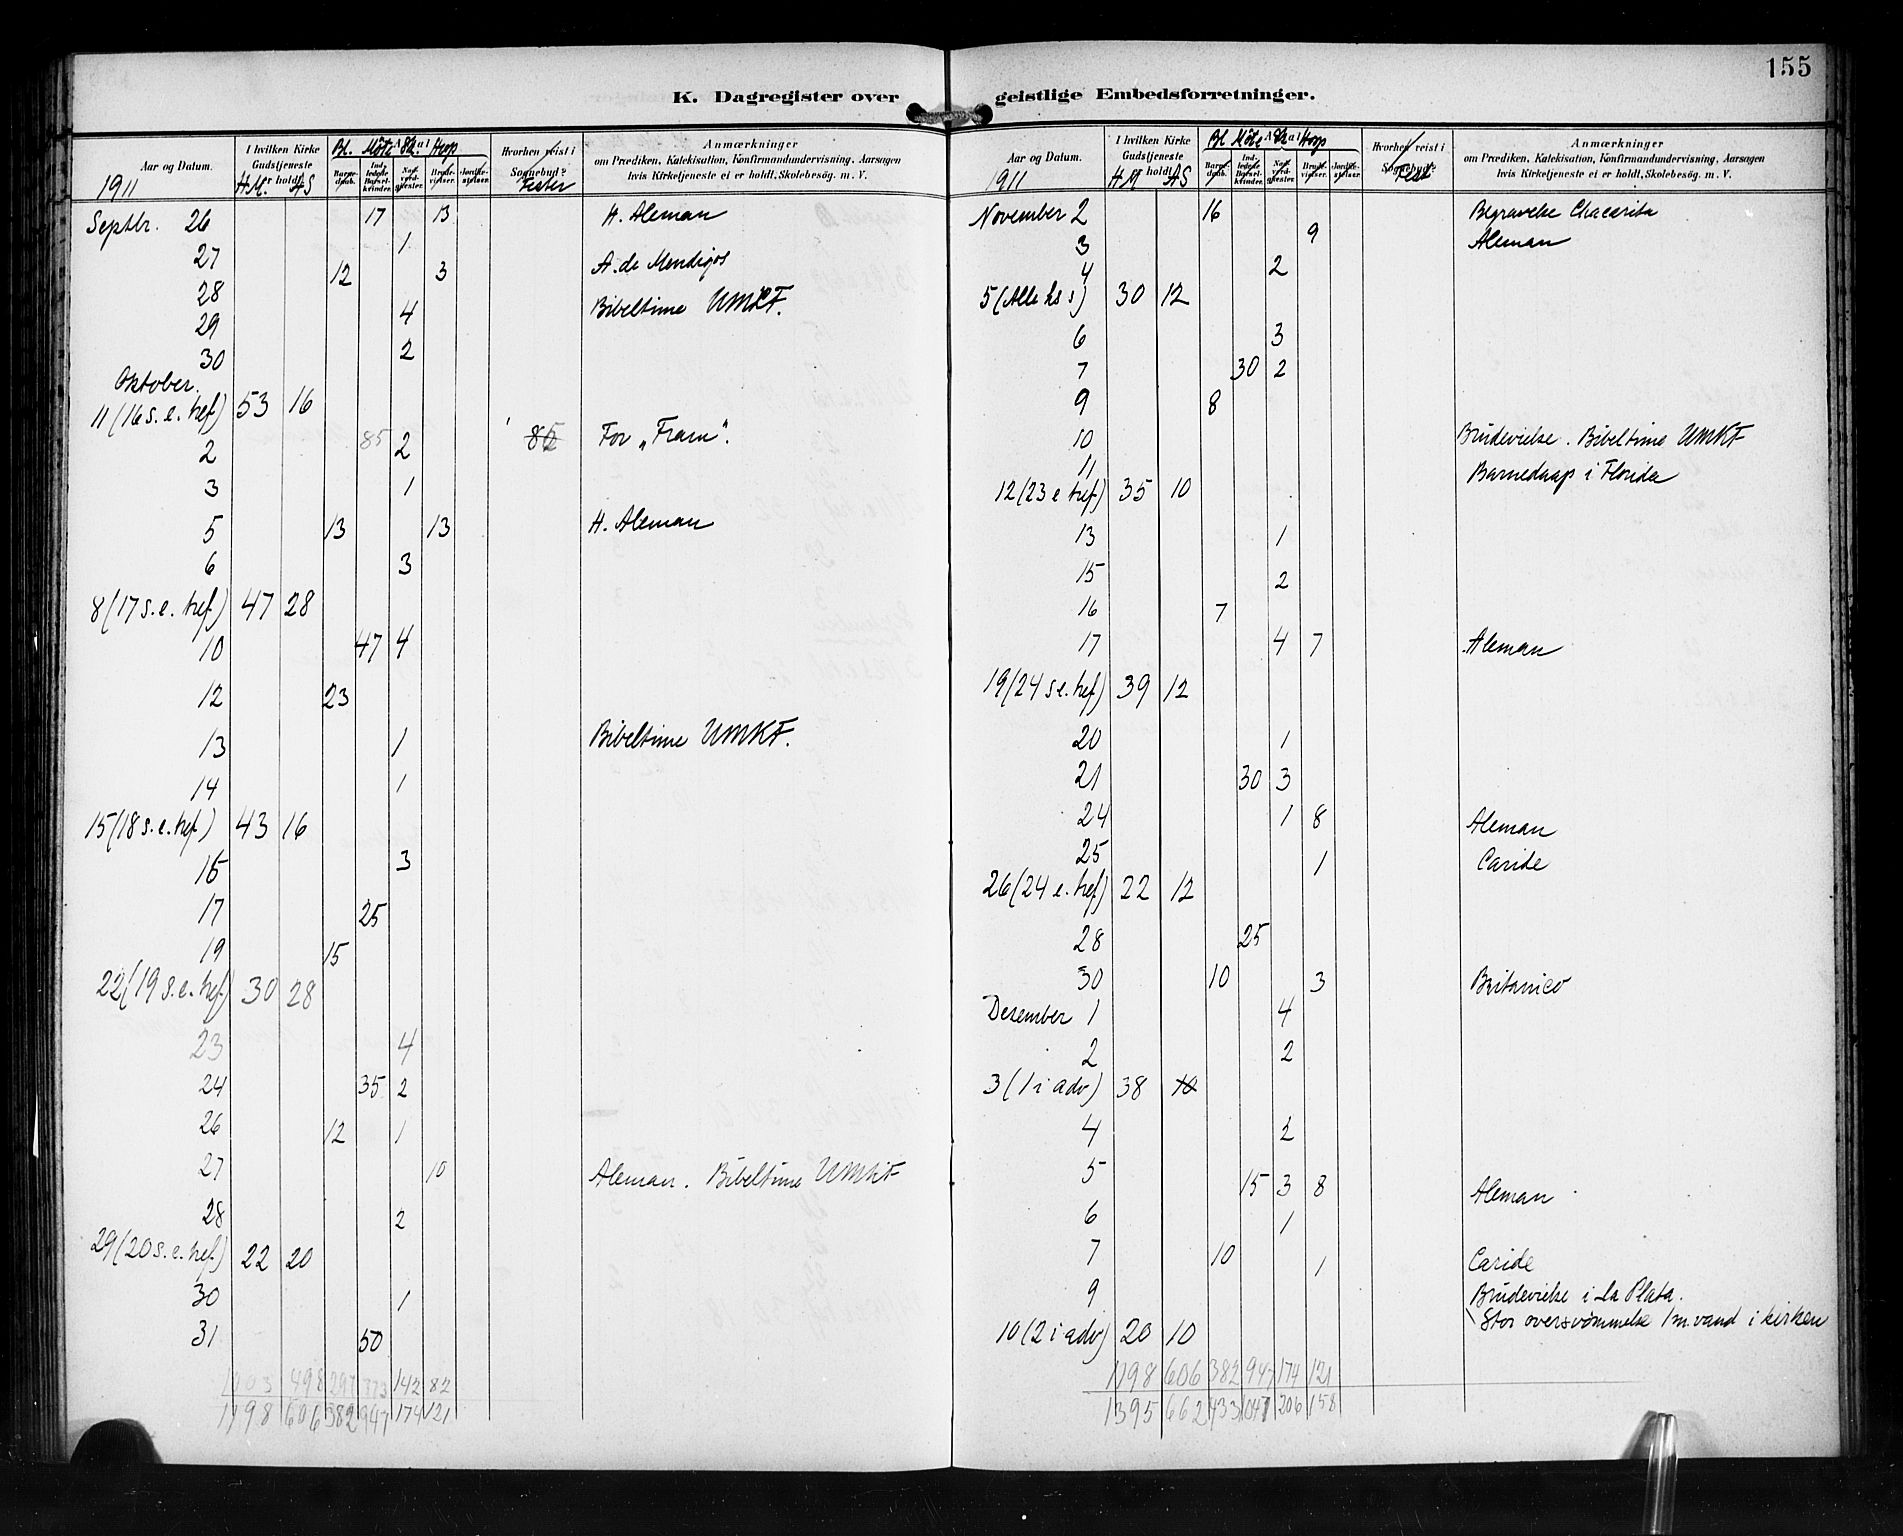 155
K. Dagregister over geistlige Embedsforretninger.
Aar og Datum.
1911
I hvilken Kirke Gudstjeneste holdt.
H.M. AS
Antal
Bl. Møte Sk. Hosp
Barne-daab. Ind-ledede Barsel-kvinder. Nat-verd-gjester. Brude-vielser. Jordfæ-stelser.
Hvorhen reist i Sognebud?
Fester
Anmærkninger
om Prædiken, Katekisation, Konfirmandundervisning. Aarsagen
hvis Kirketjeneste ei er holdt, Skolebesøg. m. V.
Septbr. 26 17 13 H. Aleman
27 1
12 3 A. de Mendigos
28
29 4 Bibeltime UMKF.
30 2
Oktober.
11 (16 s. e. tref) 53 16
2 85 2 85 For „Fram".
3 1
5 13 13 H. Aleman
6 3
8 (17 s. e. tref) 47 28
10 47 4
12 23
13 1 Bibeltime UMKF.
14 1
15 (18 s. e. tref) 43 16
16 3
17 25
19 15
22 (19 s. e. tref) 30 28
23 4
24 35 2
26 12 1
27 10 Aleman. Bibeltime UMKF
28 2
29 (20 s. e. tref) 22 20
30 1
31 50
1103 498 297 773 142 82
1198 606 382 947 174 121
Aar og Datum.
1911
I hvilken Kirke Gudstjeneste holdt.
HM AS
Antal
Bl Møte Sk Hosp
Barne-daab. Ind-ledede Barsel-kvinder. Nat-verd-gjester. Brude-vielser. Jordfæ-stelser.
Hvorhen reist i Sognebud?
Fest
Anmærkninger
om Prædiken, Katekisation, Konfirmandundervisning, Aarsagen
hvis Kirketjeneste ei er holdt, Skolebesøg. m. V.
November 2 16 Begravelse Chacarita
3 9 Aleman
4 2
5 (Alle hs s) 30 12
6 3
7 30 2
9 8
10 Brudevielse. Bibeltime UMKF
11 Barnedaap i Florida
12 (23 e tref) 35 10
13 1
15 2
16 7
17 4 7 Aleman
19 (24 s e. tref) 39 12
20 1
21 30 3
24 1 8 Aleman
25 1 Caride
26 (24 e. tref) 22 12
28 25
30 10 3 Britanico
Desember 1 4
2 2
3 (1 i adv) 38 10
4 2
5 15 3 8 Aleman
6 1
7 10 1 Caride
9 Brudevielse i La Plata.
10 (2 i adv) 20 10 Stor oversvømmelse 1 m. vand i kirken
1198 606 382 947 174 121
1395 662 433 1047 206 158